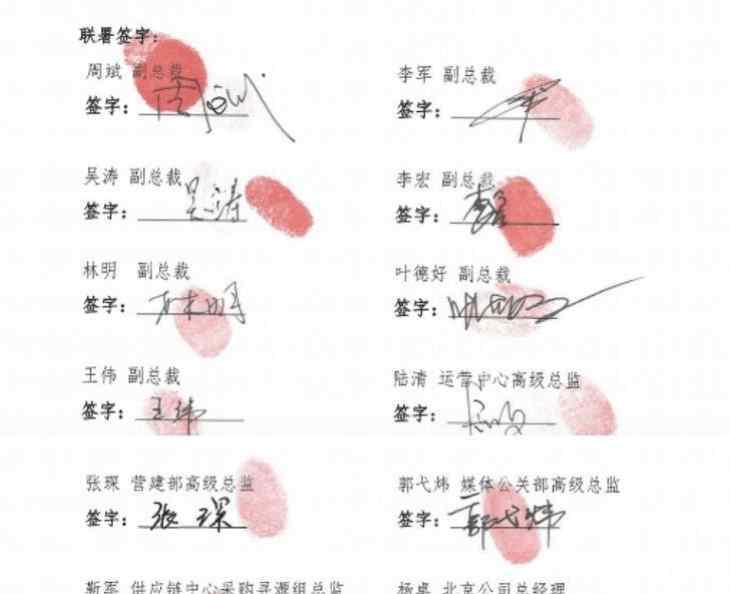 联署签字：
周斌 副总裁 李军 副总裁
签字： 签字：
吴涛 副总裁 李宏 副总裁
签字：吴涛 签字：
林明 副总裁 叶德好 副总裁
签字：林明 签字：
王伟 副总裁 陆清 运营中心高级总监
签字：王玮 签字：
张琛 营建部高级总监 郭弋炜 媒体公关部高级总监
签字：张琛 签字：郭弋炜
靳军 供应链中心采购寻源组总监 杨卓 北京公司总经理